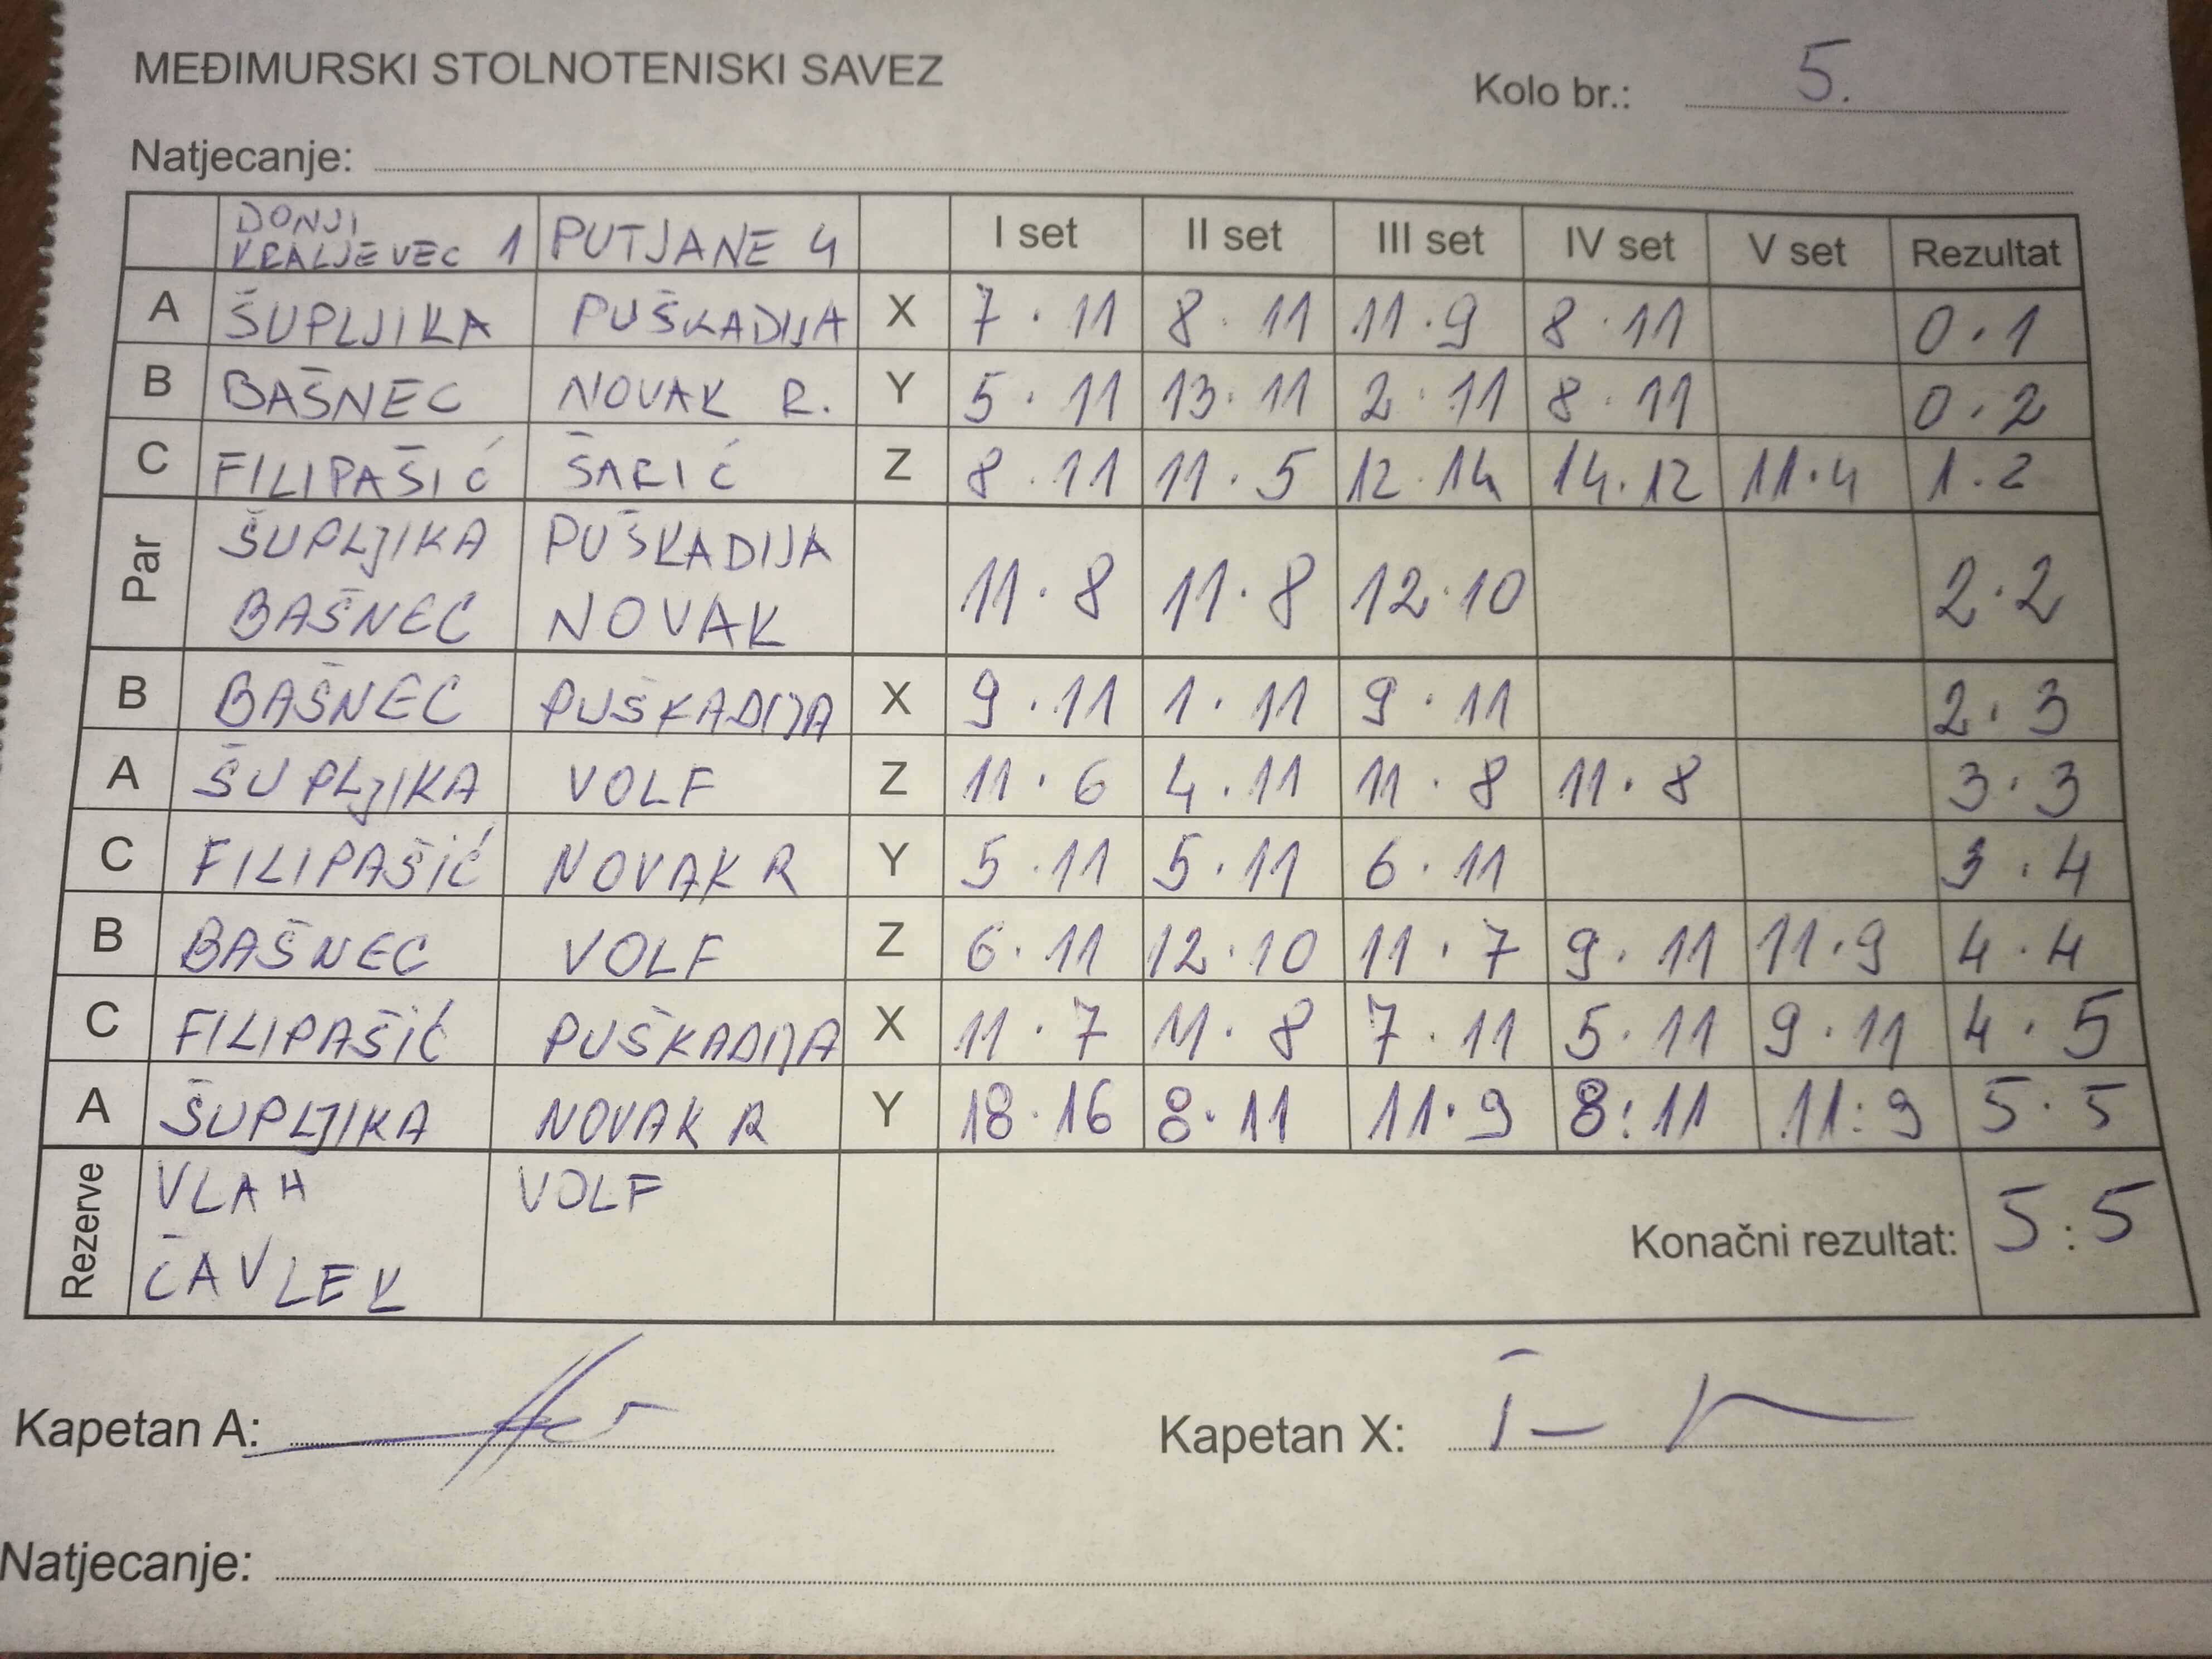 MEĐIMURSKI STOLNOTENISKI SAVEZ
Kolo br.: 5.
Natjecanje:
DONJI KRALJEVEC 1 PUTJANE 4 I set II set III set IV set V set Rezultat
A ŠUPLJIKA PUŠKADIJA X 7·11 8·11 11·9 8·11 0·1
B BAŠNEC NOVAK R. Y 5·11 13·11 2·11 8·11 0·2
C FILIPAŠIĆ ŠARIĆ Z 8·11 11·5 12·14 14·12 11·4 1·2
Par ŠUPLJIKA PUŠKADIJA
BAŠNEC NOVAK 11·8 11·8 12·10 2·2
B BAŠNEC PUŠKADIJA X 9·11 1·11 9·11 2·3
A ŠUPLJIKA VOLF Z 11·6 4·11 11·8 11·8 3·3
C FILIPAŠIĆ NOVAK R Y 5·11 5·11 6·11 3·4
B BAŠNEC VOLF Z 6·11 12·10 11·7 9·11 11·9 4·4
C FILIPAŠIĆ PUŠKADIJA X 11·7 11·8 7·11 5·11 9·11 4·5
A ŠUPLJIKA NOVAK R Y 18·16 8·11 11·9 8:11 11:9 5·5
Rezerve VLAH VOLF
ČAVLEK
Konačni rezultat: 5:5
Kapetan A: Kapetan X:
Natjecanje: